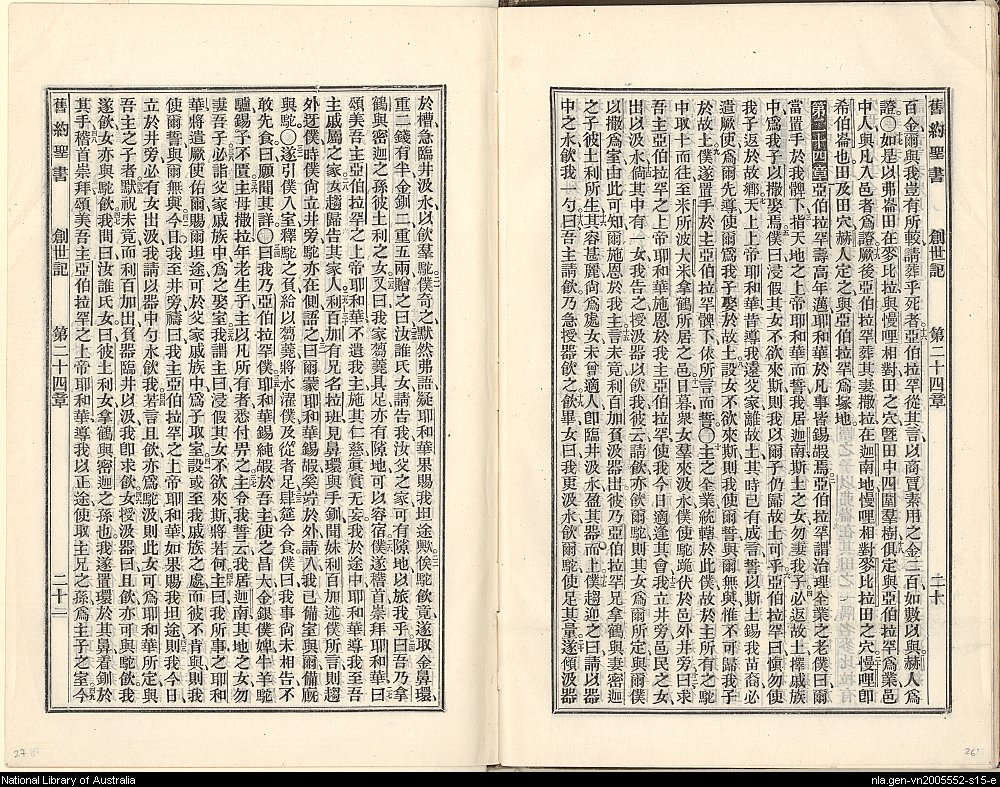 舊約聖書 創世記 第二十四章 二十
百金爾與我豈有所較請葬乎死者亞伯拉罕從其言以商賈素用之金三百如數以與赫人爲
證〇如是以弗崙田在麥比拉與慢哩相對田之穴暨田中四圍羣樹俱定與亞伯拉罕爲業邑
中人與凡入邑者爲證厥後亞伯拉罕葬其妻撒拉在迦南地慢哩相對麥比拉田之穴慢哩即
希伯崙也田及田穴赫人定之與亞伯拉罕爲塚地
第二十四章亞伯拉罕壽高年邁耶和華於凡事皆錫嘏焉亞伯拉罕謂治理全業之老僕曰爾
當置手於我髀下指天地之上帝耶和華而誓我居迦南斯土之女勿妻我子必返故土擇戚族
中爲我子以撒娶焉僕曰浸假其女不欲來斯則我以爾子仍歸故土可乎亞伯拉罕曰愼勿使
我子返於故鄉天上上帝耶和華昔導我遠父家離故土其時已有成言誓以斯土錫我苗裔必
遣厥使爲爾先導使爾爲我子娶於故土設女不欲來斯則我使爾誓與爾無與惟不可歸我子
於故土僕遂置手於主亞伯拉罕髀下依所言而誓〇主之全業統轄於此僕故於主所有之駝
中取十而往至米所波大米拿鶴所居之邑日暮衆女羣來汲水僕使駝跪伏於邑外井旁曰求
吾主亞伯拉罕之上帝耶和華施恩於我主亞伯拉罕使我今日適逢其會我立井旁邑民之女
出以汲水倘其中有一女我告之授汲器以飲我彼云請飲亦飲爾駝則其女即爾所定與爾僕
以撒爲室由此可知爾施恩於我主言未竟利百加負汲器出彼乃亞伯拉罕兄拿鶴與妻密迦
之子彼土利所生其容甚麗尙爲處女未曾適人即臨井汲水盈其器而上僕趨迎之曰請以器
中之水飲我一勺曰吾主請飲乃急授器飲之飲畢女曰我更汲水飲爾駝使足其量遂傾汲器
於槽急臨井汲水以飲羣駝僕奇之默然弗語疑耶和華果賜我坦途歟俟駝飲竟遂取金鼻環
重二錢有半金釧二重五兩贈之曰汝誰氏女請告我汝父之家可有隙地以旅我乎曰吾乃拿
鶴與密迦之孫彼土利之女又曰我家芻藁具足亦有隙地可以容宿僕遂稽首崇拜耶和華曰
頌美吾主亞伯拉罕之上帝耶和華不遺我主施其仁慈眞實無妄我於途中耶和華導我至吾
主戚屬之家女趨歸告其家人利百加有兄名拉班見鼻環與手釧聞妹利百加述僕所言則趨
外迓僕時僕尙立井旁駝亦在側語之曰爾蒙耶和華錫嘏奚竚於外請入我已備室與爾備廐
與駝〇遂引僕入室釋駝之負給以芻藁將水濯僕及從者足肆筵令食僕曰我事尙未相告不
敢先食曰願聞其詳〇曰我乃亞伯拉罕僕耶和華錫純嘏於吾主使之昌大金銀僕婢牛羊駝
驢錫予不匱主母撒拉年老生子主以凡所有者悉付畀之主令我誓云我居迦南其地之女勿
妻吾子必詣父家戚族中爲之娶室我謂主曰浸假其女不欲來斯將若何主曰我所事之耶和
華將遣厥使佑爾賜爾坦途可於父家戚族中爲子取室設或至我戚族之處而彼不肯與則我
使爾誓與爾無與今日我至井旁禱曰我主亞伯拉罕之上帝耶和華如果賜我坦途則我今日
立於井旁必有女出汲我請以器中勺水飲我若言且飲亦爲駝汲則此女可爲耶和華所定與
吾主之子者默祝未竟而利百加出負器臨井以汲我即求飲女授汲器曰且飲亦可與駝飲我
遂飲女亦與駝飲我問曰汝誰氏女曰彼土利女拿鶴與密迦之孫也我遂置環於其鼻着釧於
其手稽首崇拜頌美吾主亞伯拉罕之上帝耶和華導我以正途使取主兄之孫爲主子之室今
舊約聖書 創世記 第二十四章 二十一
27
26
National Library of Australia
nla.gen-vn2005552-s15-e